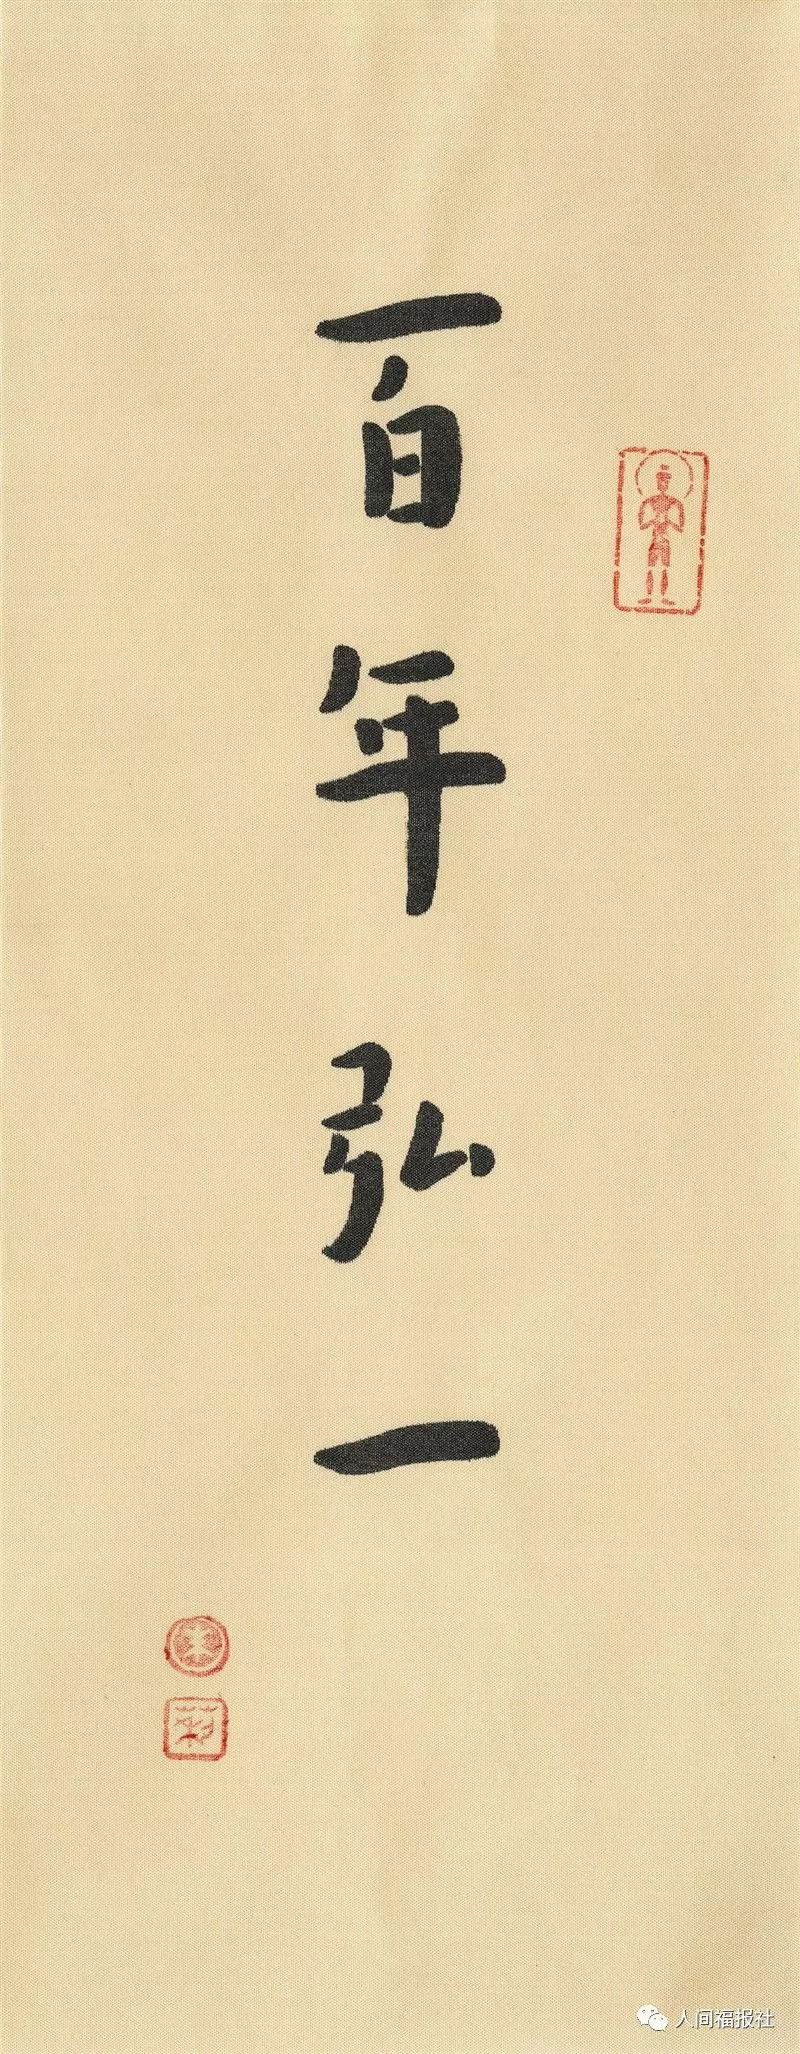 百年弘一
人间福报社